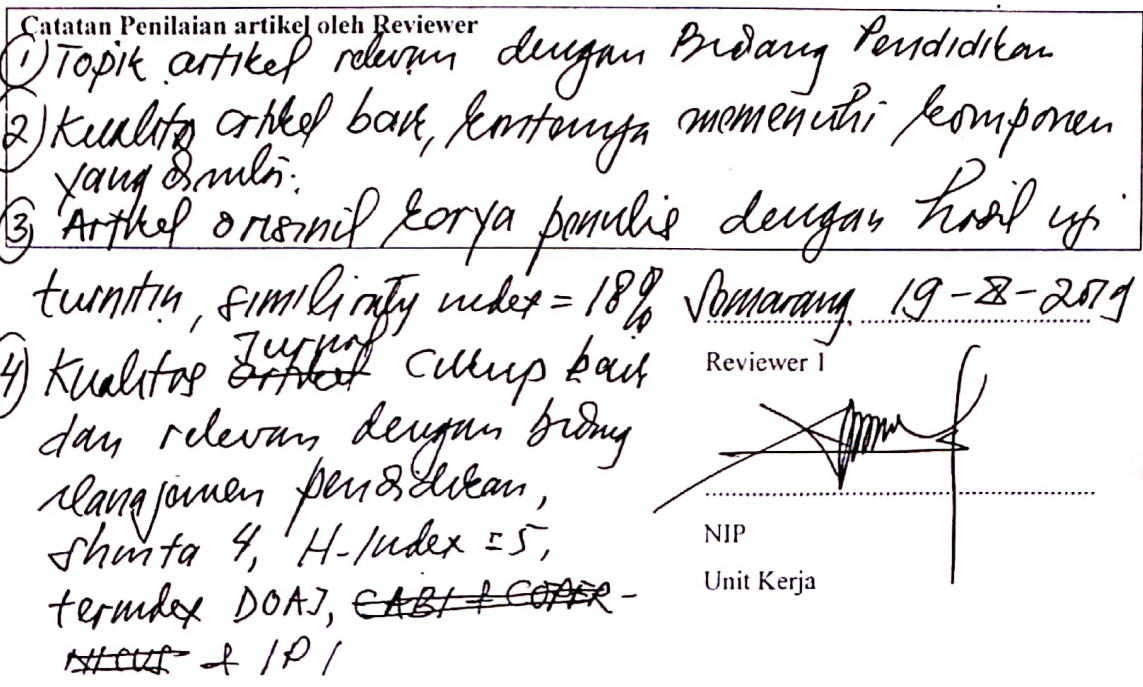 Catatan Penilaian artikel oleh Reviewer
① Topik artikel relevan dengan Bidang Pendidikan
② Kualitas artikel baik, kontennya memenuhi komponen
yang dinilai.
③ Artikel orisinil karya penulis dengan hasil uji
turnitin, similiraty index = 18%
④ Kualitas artikel Jurnal cukup baik
dan relevan dengan bidang
Manajemen pendidikan,
Shinta 4, H-Index = 5,
terindex DOAJ, CABI + COPER-
NICUS + IPI
Semarang, 19-8-2019
Reviewer 1
NIP
Unit Kerja